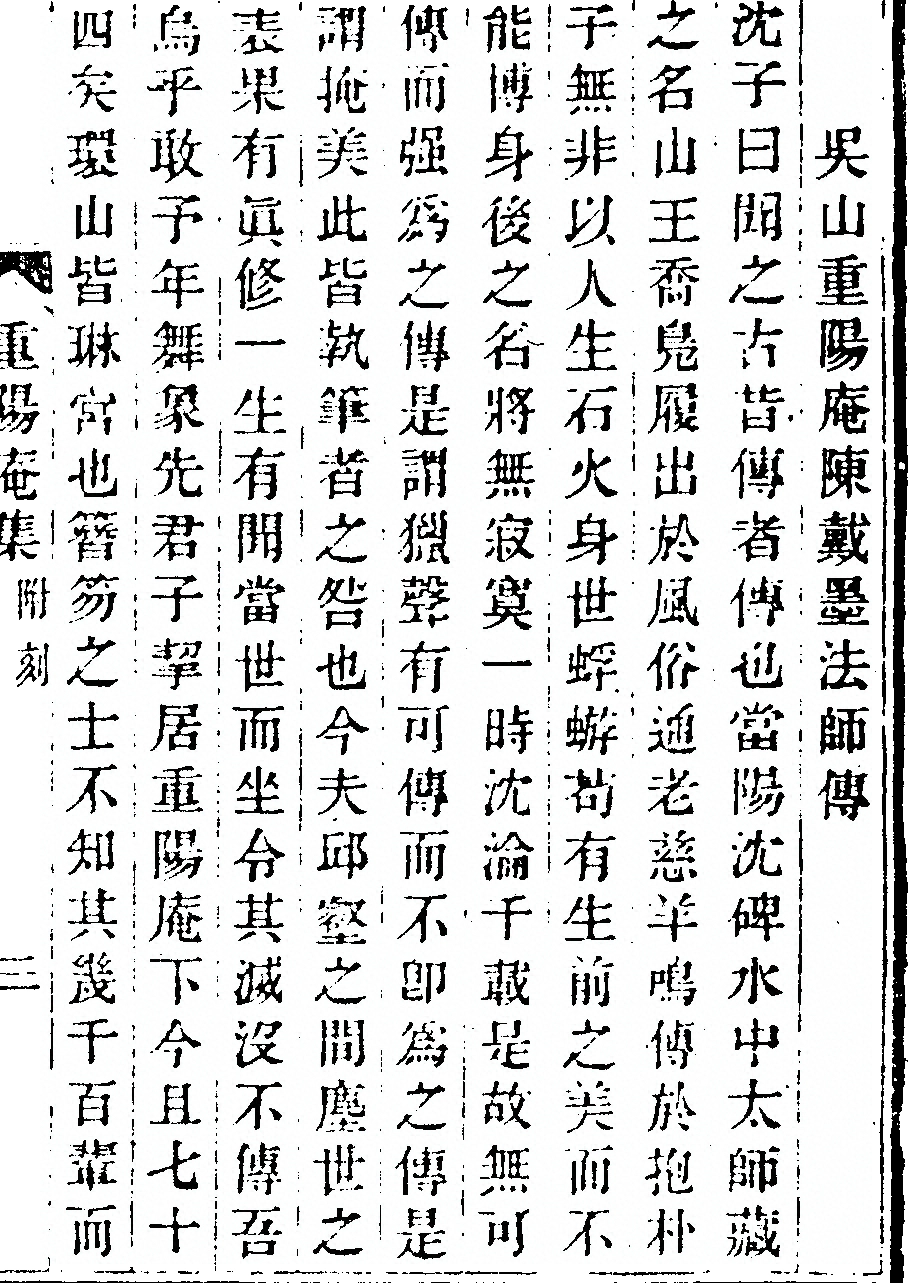 吳山重陽庵陳戴墨法師傳
沈子曰聞之古昔傳者傳也當陽沈碑水中太師藏
之名山王喬鳧履出於風俗通老慈羊鳴傳於抱朴
子無非以人生石火身世蜉蝣茍有生前之美而不
能博身後之名將無寂寞一時沈淪千載是故無可
傳而强爲之傳是謂獵聲有可傳而不卽爲之傳是
謂掩美此皆執筆者之咎也今夫邱壑之間塵世之
表果有眞修一生有聞當世而坐令其滅沒不傳吾
烏乎敢予年舞象先君子挈居重陽庵下今且七十
四矣環山皆琳宮也簪笏之士不知其幾千百輩而
重陽庵集 附刻 三